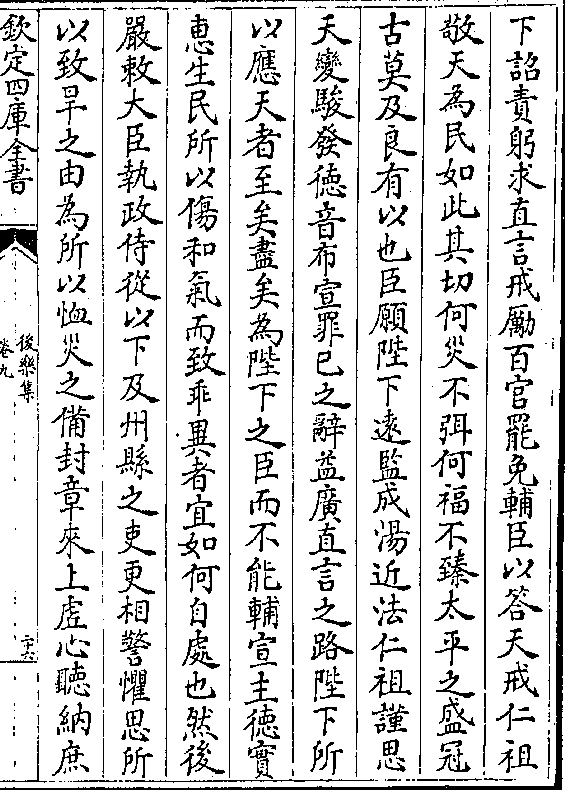 下詔責躬求直言戒厲百官罷免輔臣以答天戒仁祖
敬天為民如此其切何災不弭何福不臻太平之盛冠
古莫及良有以也臣願陛下逺監成湯近法仁祖謹思
天變駿發徳音布宣罪已之辭益廣直言之路陛下所
以應天者至矣盡矣為陛下之臣而不能輔宣主徳實
恵生民所以傷和氣而致乖異者宜如何自處也然後
嚴敕大臣執政侍從以下及州縣之吏更相警懼思所
以致旱之由為所以恤災之備封章來上虚心聽納庶
欽定四庫全書
後樂集
卷九
二十六